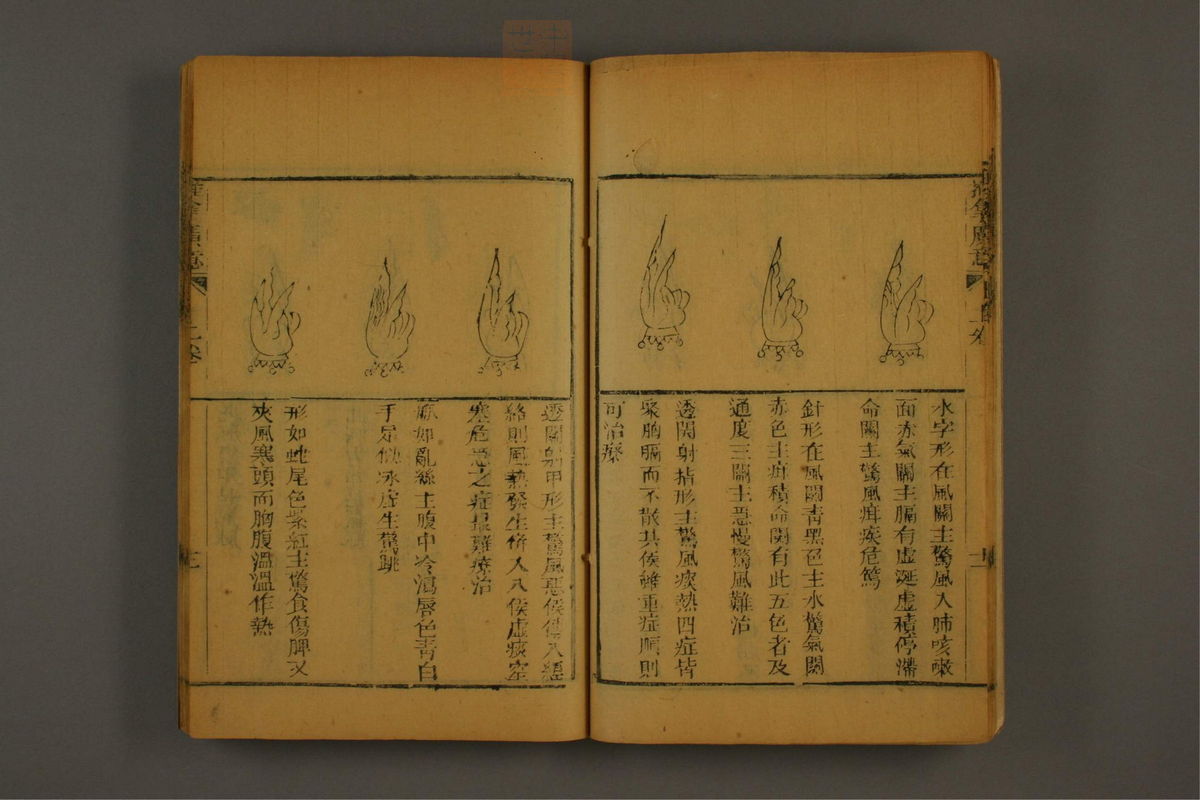 水字形在風關主驚風入肺咳嗽
面赤氣關主膈有虛涎虛積停滯
命關主驚風疳疾危篤
針形在風關青黑色主水驚氣關
赤色主疳積命關有此五色者及
通度三關主惡慢驚風難治
透関射指形主驚風痰熱四症皆
聚胸膈而不散其候雖重症順則
可治療
透關射甲形主驚風惡候傳入經
絡則風熱發生併入八候虛痰
寒危惡之症最難療治
脉如亂絲主腹中冷瀉唇色青白
手足似氷虛生驚跳
形如蛇尾色紫紅主驚食傷脾又
夾風寒頭而胸腹溫溫作熱